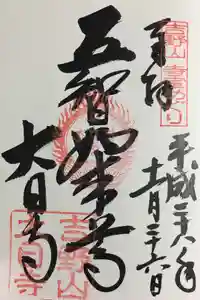 奉拝
平成二十八年
十一月二十六日
五智如来尊
大日寺
吉野山
大日寺